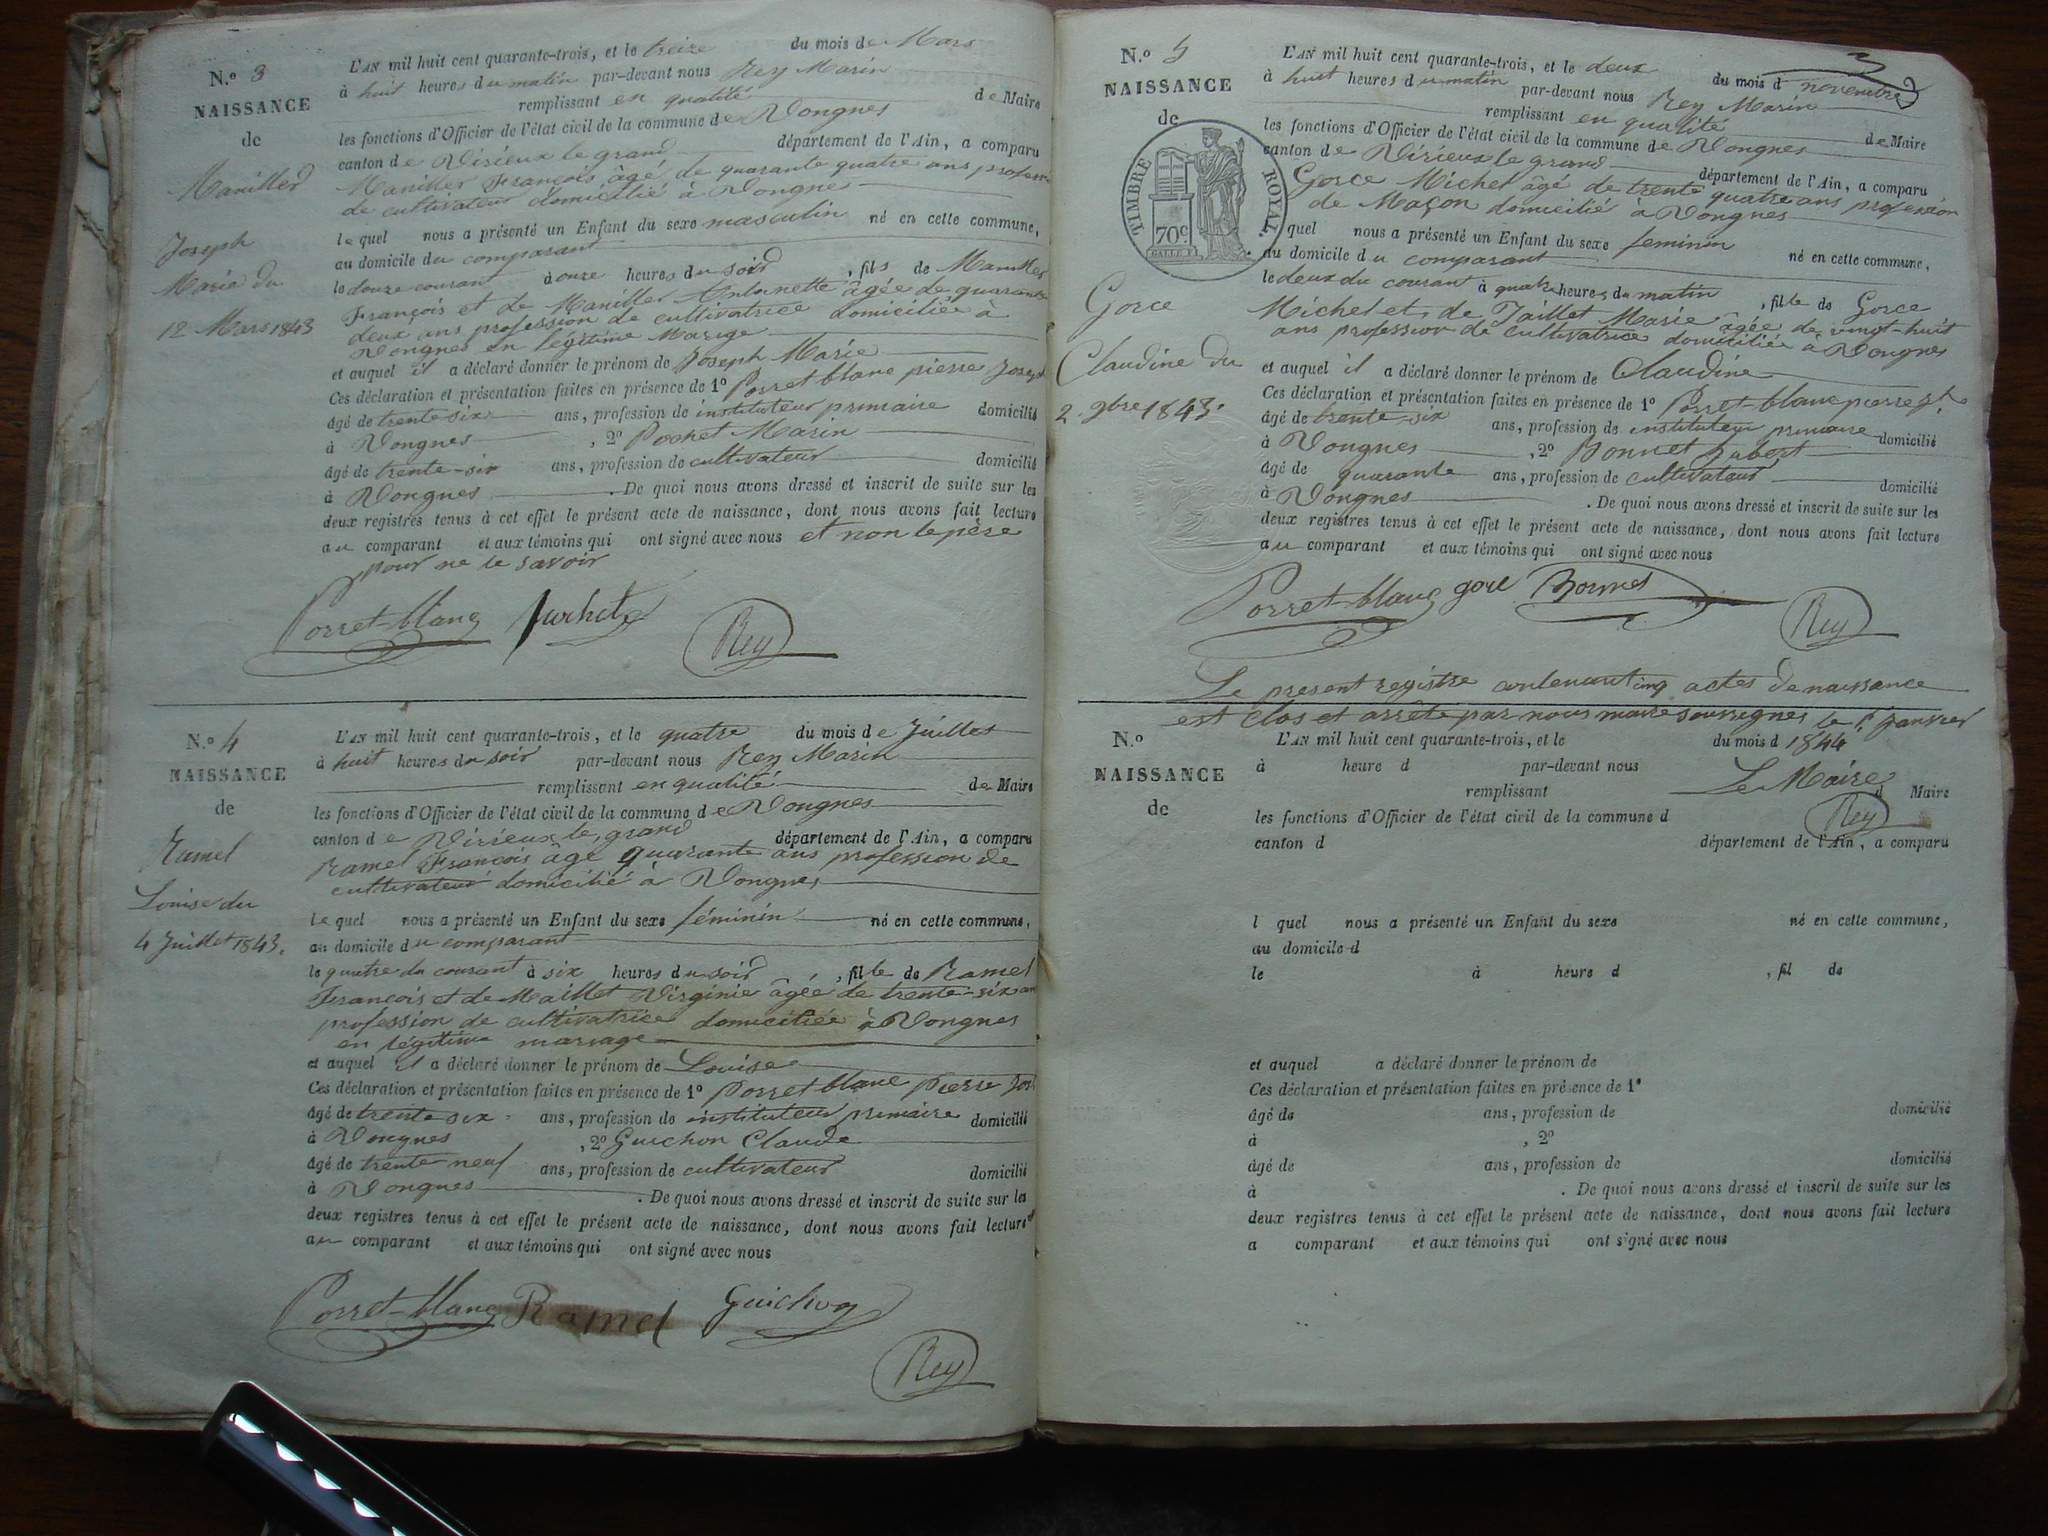 N.o 3
NAISSANCE
de
Maniller
Joseph
Marie du
12 Mars 1843
L'AN mil huit cent quarante-trois, et le treize du mois de Mars
à huit heures du matin par-devant nous Rey Marin
remplissant en qualité de Maire
les fonctions d'Officier de l'état civil de la commune de Vongnes
canton de Virieux le grand département de l'Ain, a comparu
Maniller François âgé de quarante quatre ans profession
de cultivateur domicilié à Vongnes
le quel nous a présenté un Enfant du sexe masculin né en cette commune,
au domicile du comparant
le douze courant à onze heures du soir, fils de Maniller
François et de Maniller Antoinette âgée de quarante
deux ans profession de cultivatrice domiciliée à
Vongnes en légitime Mariage
et auquel il a déclaré donner le prénom de Joseph Marie
Ces déclaration et présentation faites en présence de 1o Porret blanc pierre Joseph
âgé de trente six ans, profession de instituteur primaire domicilié
à Vongnes, 2o Pochet Marin
âgé de trente-six ans, profession de cultivateur domicilié
à Vongnes. De quoi nous avons dressé et inscrit de suite sur les
deux registres tenus à cet effet le présent acte de naissance, dont nous avons fait lecture
au comparant et aux témoins qui ont signé avec nous et non le père
pour ne le savoir
Porret-blanc Pochet
Rey
N.o 4
NAISSANCE
de
Ramel
Louise du
4 Juillet 1843.
L'AN mil huit cent quarante-trois, et le quatre du mois de Juillet
à huit heures du soir par-devant nous Rey Marin
remplissant en qualité de Maire
les fonctions d'Officier de l'état civil de la commune de Vongnes
canton de Virieux le grand département de l'Ain, a comparu
Ramel François âgé quarante ans profession de
cultivateur domicilié à Vongnes
le quel nous a présenté un Enfant du sexe féminin né en cette commune,
au domicile du comparant
le quatre du courant à six heures du soir, fille de Ramel
François et de Maillet Virginie âgée de trente-six ans
profession de cultivatrice domiciliée à Vongnes
en légitime mariage
et auquel il a déclaré donner le prénom de Louise
Ces déclaration et présentation faites en présence de 1o Porret blanc Pierre Jos
âgé de trente six ans, profession de instituteur primaire domicilié
à Vongnes, 2o Guichon Claude
âgé de trente neuf ans, profession de cultivateur domicilié
à Vongnes. De quoi nous avons dressé et inscrit de suite sur les
deux registres tenus à cet effet le présent acte de naissance, dont nous avons fait lecture
au comparant et aux témoins qui ont signé avec nous
Porret-blanc Ramel Guichon
Rey
3
N.o 5
NAISSANCE
de
TIMBRE ROYAL.
70c
Gorce
Claudine du
2. 9bre 1843.
L'AN mil huit cent quarante-trois, et le deux du mois d novembre
à huit heures du matin par-devant nous Rey Marin
remplissant en qualité de Maire
les fonctions d'Officier de l'état civil de la commune de Vongnes
canton de Virieux le grand département de l'Ain, a comparu
Gorce Michel âgé de trente quatre ans profession
de Maçon domicilié à Vongnes
quel nous a présenté un Enfant du sexe feminin né en cette commune,
au domicile du comparant
le deux du courant à quatre heures du matin, fille de Gorce
Michel et de Taillet Marie âgée de vingt-huit
ans profession de cultivatrice domiciliée à Vongnes
et auquel il a déclaré donner le prénom de Claudine
Ces déclaration et présentation faites en présence de 1o Porret-blanc pierre jh.
âgé de trente-six ans, profession de instituteur primaire domicilié
à Vongnes, 2o Bonnet hubert
âgé de quarante ans, profession de cultivateur domicilié
à Vongnes. De quoi nous avons dressé et inscrit de suite sur les
deux registres tenus à cet effet le présent acte de naissance, dont nous avons fait lecture
au comparant et aux témoins qui ont signé avec nous
Porret-blanc gorce Bonnet
Rey
Le present registre contenant cinq actes de naissance
est clos et arrêté par nous maire soussignes le 1r janvier
1844.
Le Maire
Rey
N.o
NAISSANCE
de
L'AN mil huit cent quarante-trois, et le du mois d
à heure d par-devant nous
remplissant d Maire
les fonctions d'Officier de l'état civil de la commune d
canton d département de l'Ain, a comparu
l quel nous a présenté un Enfant du sexe né en cette commune,
au domicile d
le à heure d, fil de
et auquel a déclaré donner le prénom de
Ces déclaration et présentation faites en présence de 1o
âgé de ans, profession de domicilié
à, 2o
âgé de ans, profession de domicilié
à. De quoi nous avons dressé et inscrit de suite sur les
deux registres tenus à cet effet le présent acte de naissance, dont nous avons fait lecture
a comparant et aux témoins qui ont signé avec nous